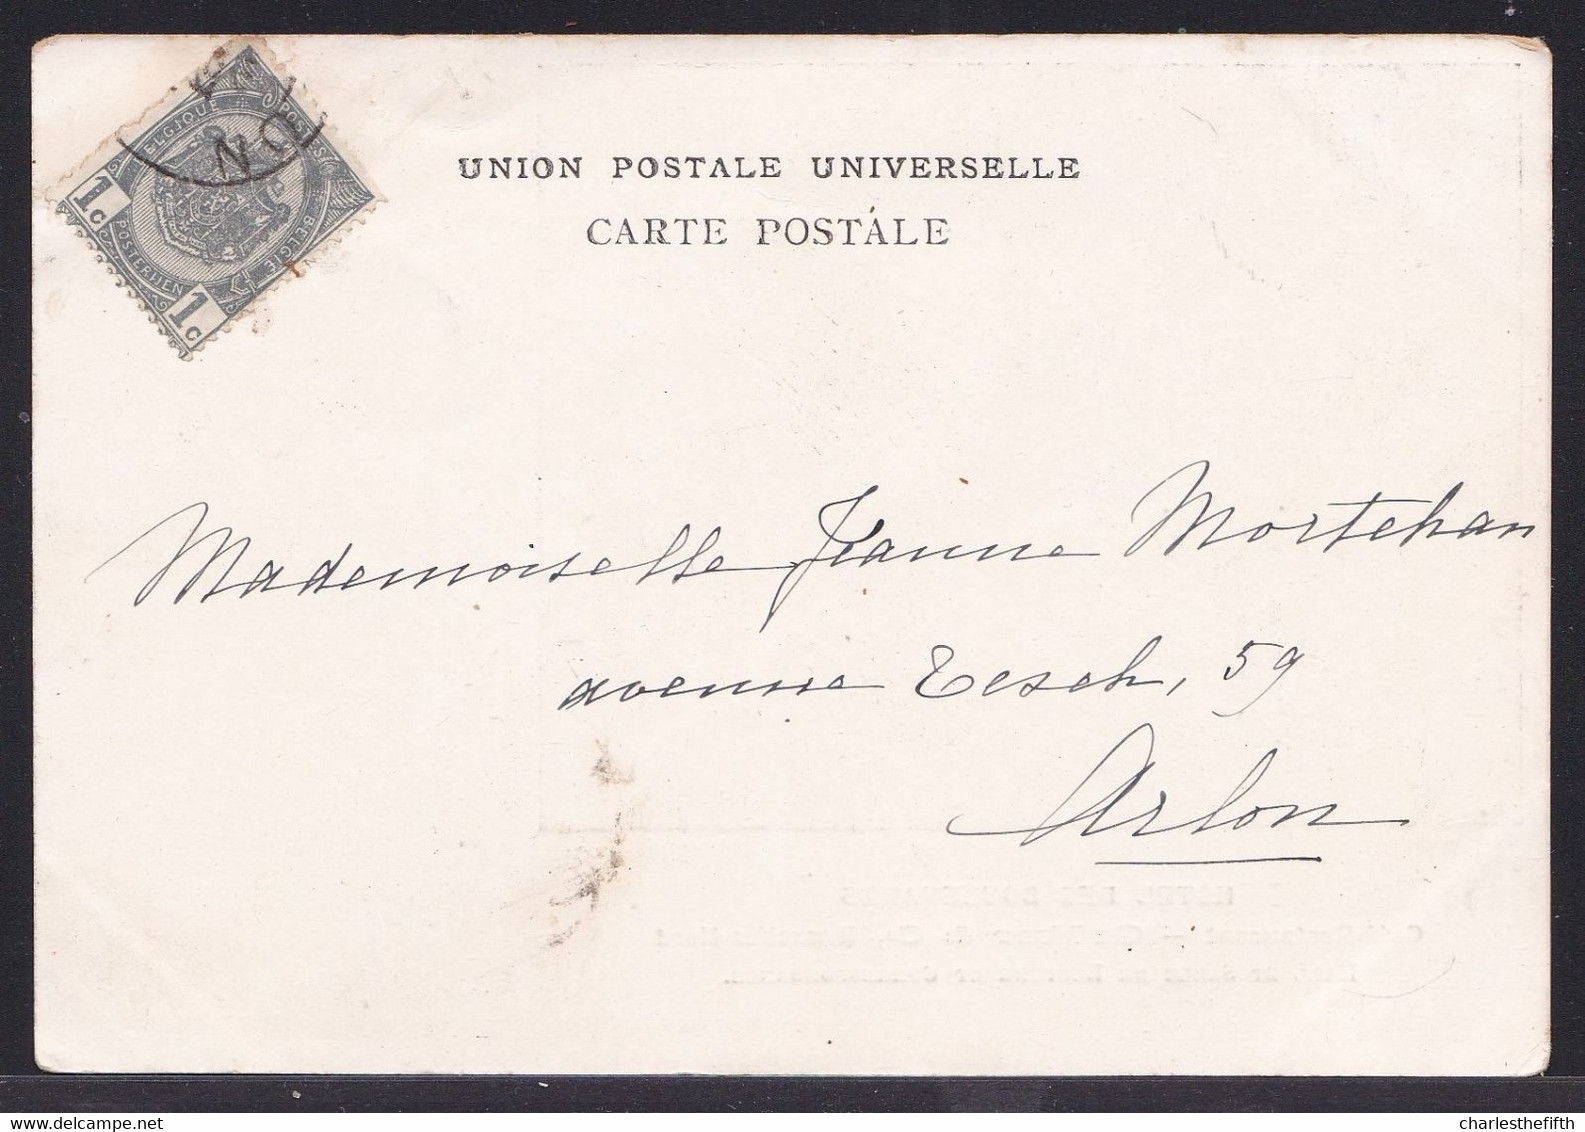 BELGIQUE POSTES
ON
1c
POSTERIJEN BELGIË
1c
UNION POSTALE UNIVERSELLE
CARTE POSTALE
Mademoiselle Jeanne Mortehan
avenue Tesch, 59
Arlon
charlesthefifth